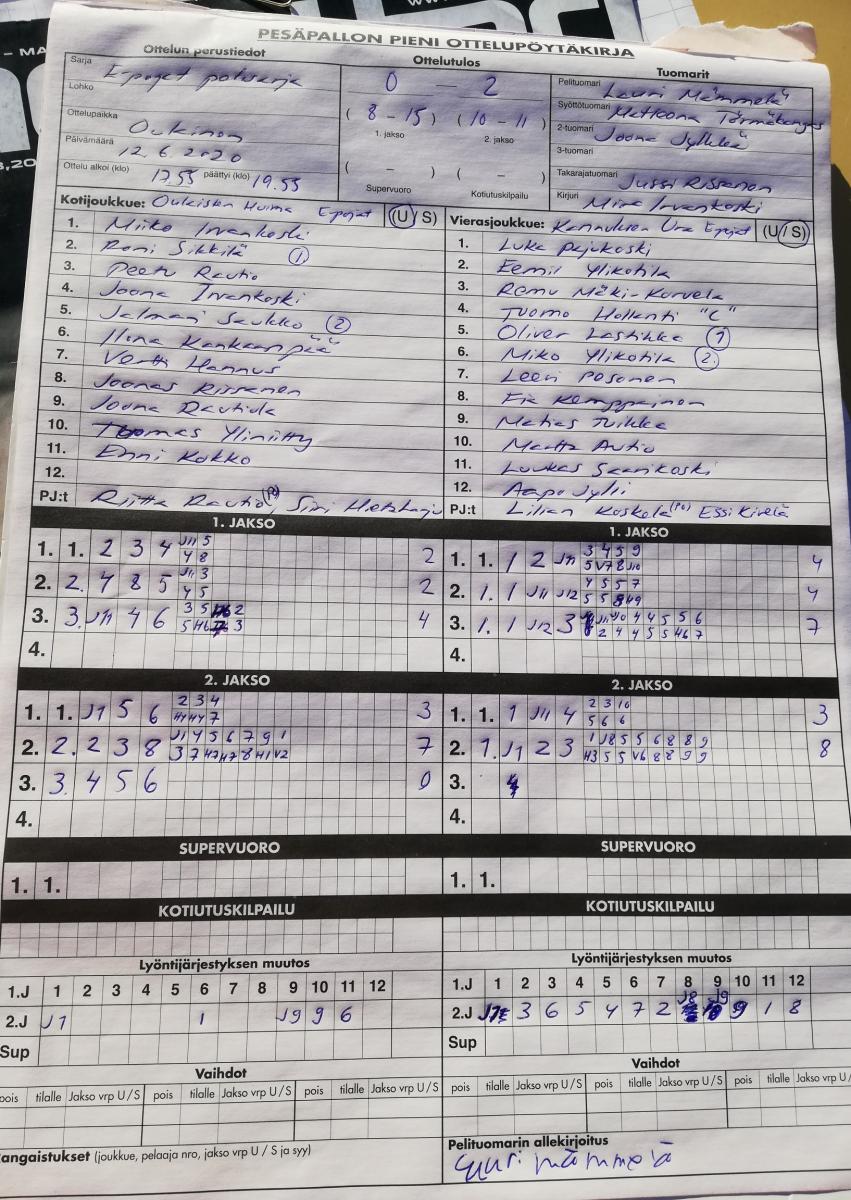 PESÄPALLON PIENI OTTELUPÖYTÄKIRJA
Ottelun perustiedot
Sarja E-pojat
Lohko
Ottelupaikka Oulainen
Päivämäärä 12.6.2020
Ottelu alkoi (klo) 17.55 päättyi (klo) 19.55
Ottelutulos
0 – 2
(8 – 15) (10 – 11)
1. jakso 2. jakso
( – ) ( – )
Supervuoro Kotiutuskilpailu
Tuomarit
Pelituomari Lauri Mämmelä
Syöttötuomari Törmäkangas
2-tuomari Joona Jylkkä
3-tuomari
Takarajatuomari Jussi Rissanen
Kirjuri Mira Irvankoski
Kotijoukkue: Oulaisten Huima E-pojat (U/S)
1. Miiko Irvankoski
2. Roni Sikkilä 1
3. Peetu Rautio
4. Joona Irvankoski
5. Jalmari Saukko 2
6. Ilina Kankaanpää
7. Vertti Hannus
8. Joonas Rissanen
9. Joona Rautiola
10. Tuomas Yliniitty
11. Enni Kokko
12.
PJ:t Riitta Rautio (PJ) Sini
Vierasjoukkue: Kannuksen Ura E-pojat (U/S)
1. Luka Pajukoski
2. Eemil Ylikotila
3. Remu Mäki-Korvela
4. Tuomo Hollanti "C"
5. Oliver Lastikka 1
6. Miko Ylikotila 2
7. Leevi Posonen
8. Kemppainen
9. Matias Tuikka
10. Autio
11. Luukas Saarikoski
12. Aapo Jyli
PJ:t Lilian Koskela (PJ) Essi Kivelä
1. JAKSO
1. 1. 2 3 4 J11 5 2
4 8
2. 2. 4 8 5 J11 3 2
4 5
3. 3. J11 4 6 3 5 2 4
5 H6 3
4.
1. JAKSO
1. 1. 1 2 J11 3 4 5 9 4
5 V7 8 J10
2. 1. 1 J11 J12 4 5 5 7 4
5 5 8 H9
3. 1. 1 J12 3 J11 J10 4 4 5 5 6 7
2 4 4 5 5 H6 7
4.
2. JAKSO
1. 1. J1 5 6 2 3 4 3
H4 H4 7
2. 2. 2 3 8 J1 4 5 6 7 9 1 7
3 7 H7 H7 8 H1 V2
3. 3. 4 5 6 0
4.
2. JAKSO
1. 1. 1 J11 4 2 3 10 3
5 6 6
2. 1. J1 2 3 1 J8 5 5 6 8 8 9 8
H3 5 5 V6 8 8 9 9
3.
4.
SUPERVUORO
1. 1.
SUPERVUORO
1. 1.
KOTIUTUSKILPAILU
KOTIUTUSKILPAILU
Lyöntijärjestyksen muutos
1.J 1 2 3 4 5 6 7 8 9 10 11 12
2.J J1 1 J9 9 6
Sup
Lyöntijärjestyksen muutos
1.J 1 2 3 4 5 6 7 8 9 10 11 12
2.J 3 6 5 4 7 2 J8 J9 9 1 8
Sup
Vaihdot
pois tilalle Jakso vrp U/S pois tilalle Jakso vrp U/S pois tilalle Jakso vrp U/S
Vaihdot
pois tilalle Jakso vrp U/S pois tilalle Jakso vrp U/S pois tilalle Jakso vrp U/
angaistukset (joukkue, pelaaja nro, jakso vrp U / S ja syy)
Pelituomarin allekirjoitus
Lauri Mämmelä